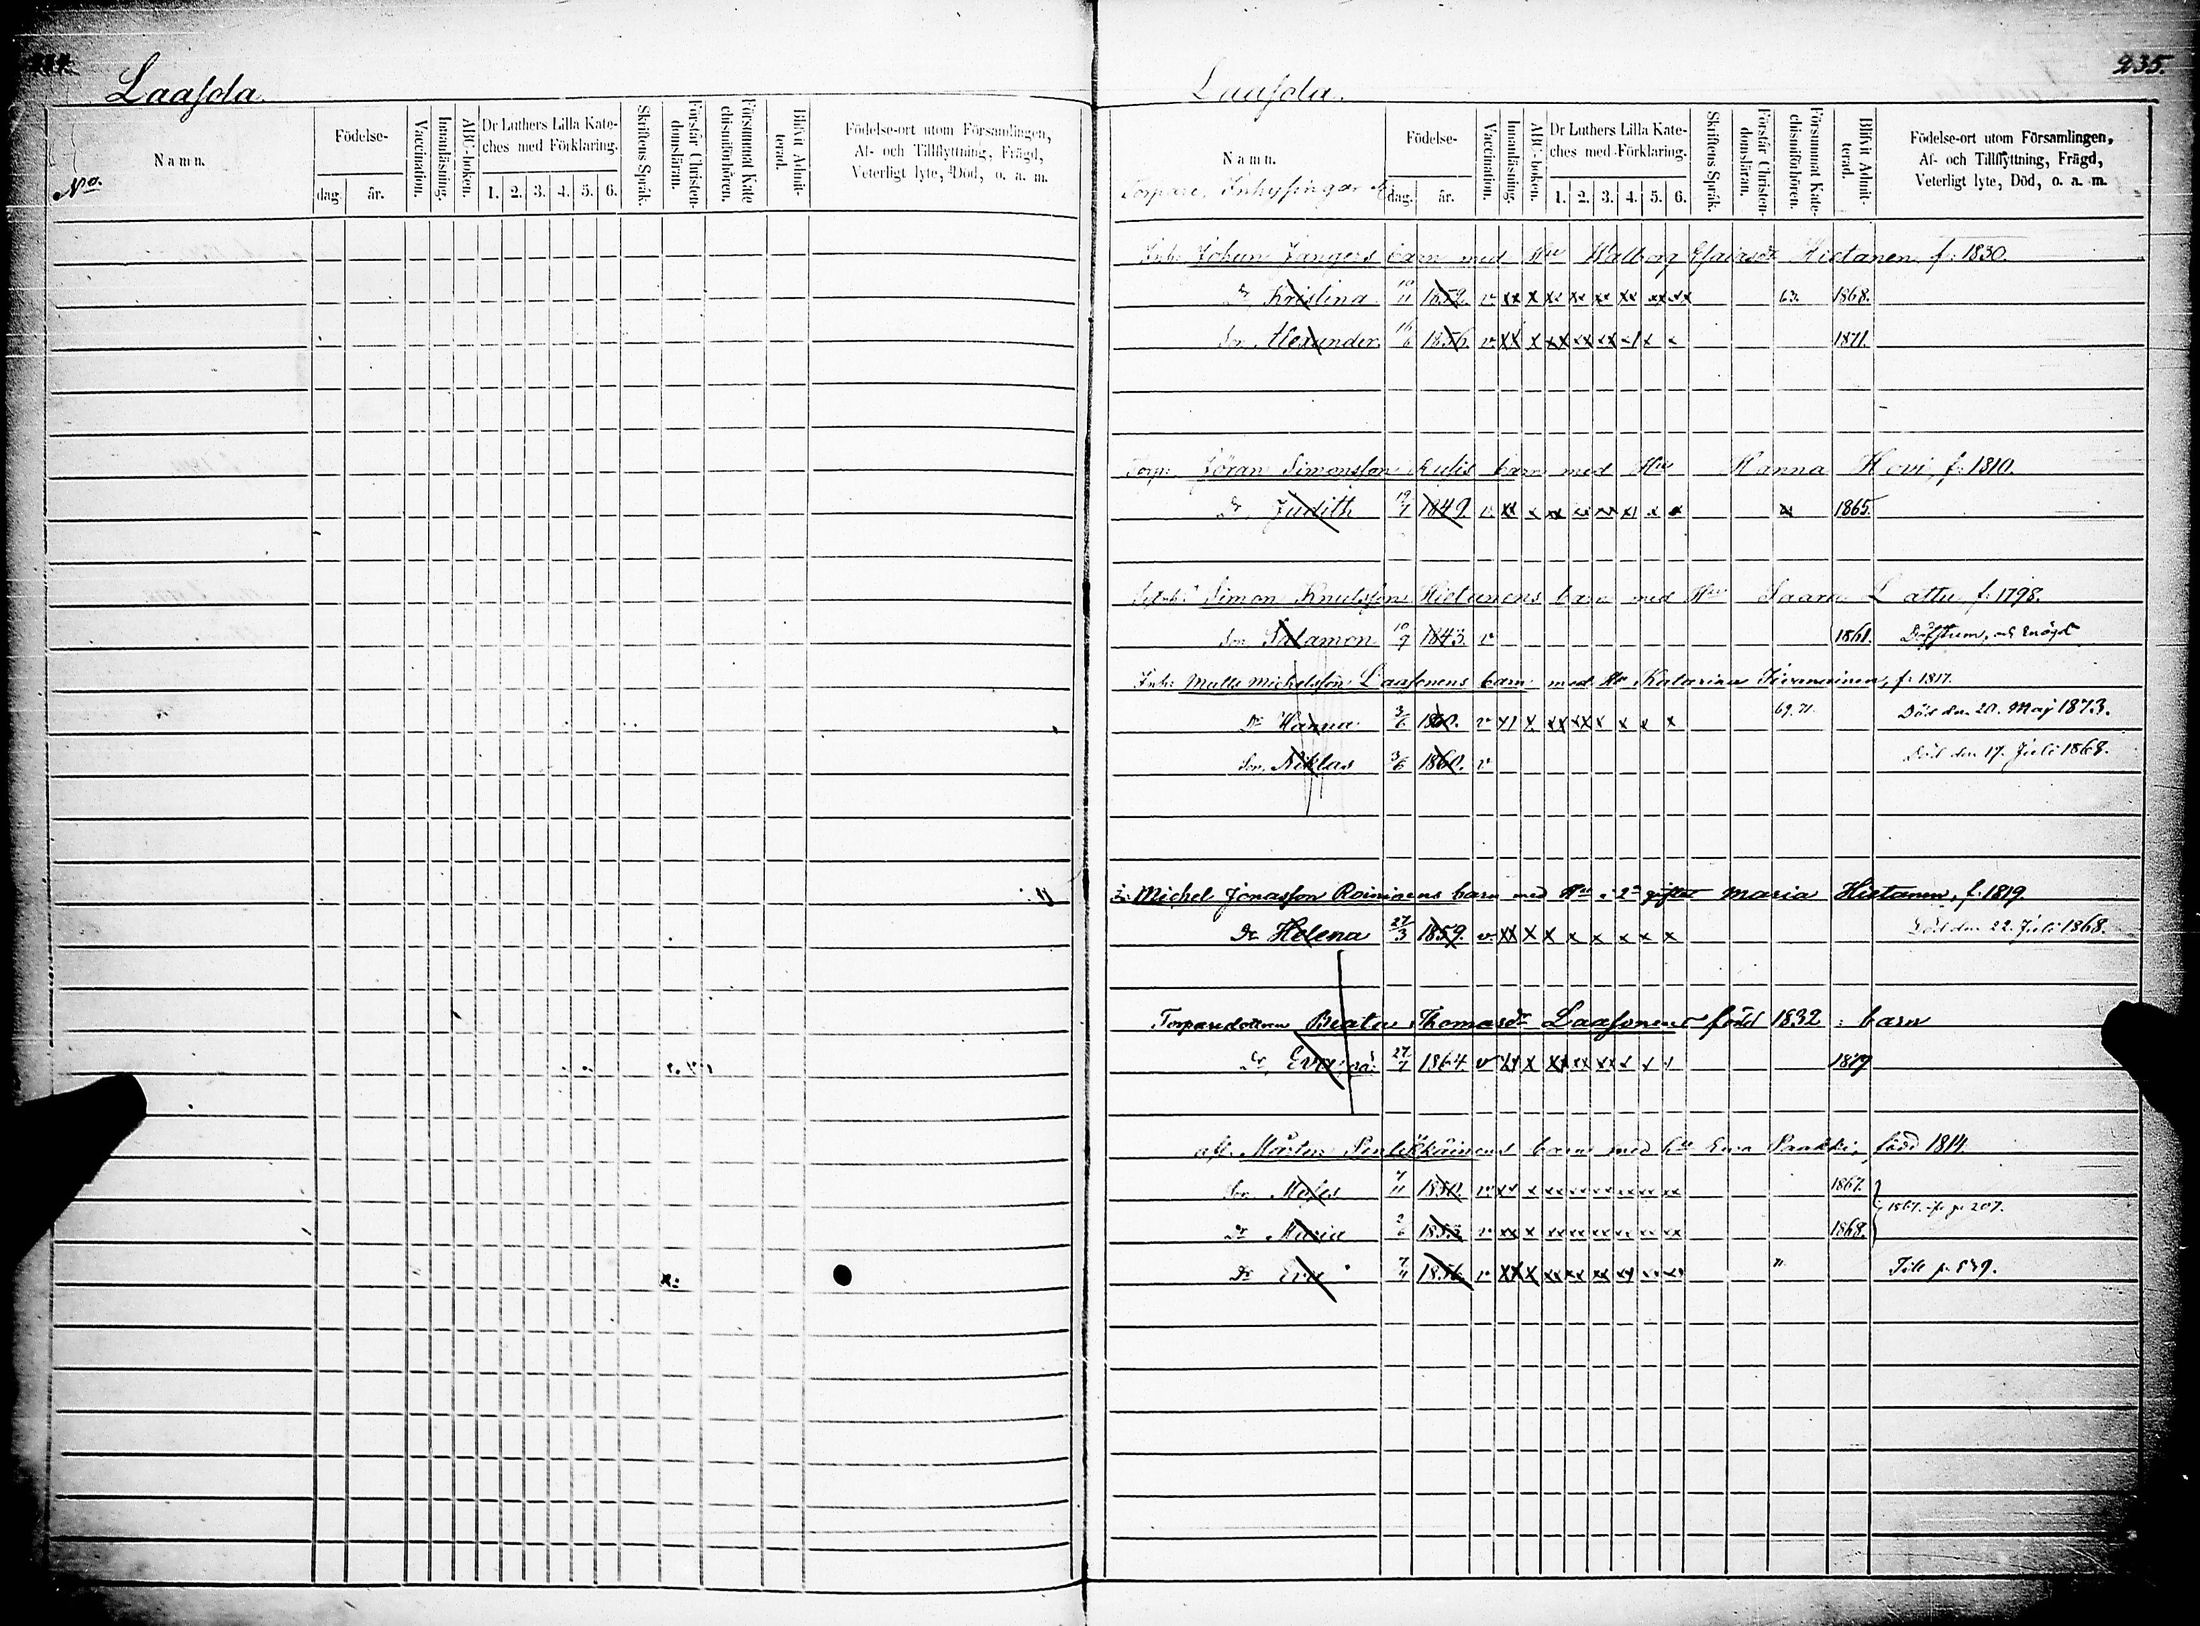 Laasola.
No.
Namn.
Födelse-
dag.
år.
Vaccination.
Innanläsning.
ABC-boken.
Dr Luthers Lilla Kate-
ches med Förklaring.
1. 2. 3. 4. 5. 6.
Skriftens Språk.
Förstår Christen-
domsläran.
Försummat Kate-
chismiförhören.
Blifvit Admit-
terad.
Födelse-ort utom Församlingen,
Af- och Tillflyttning, Frägd,
Veterligt lyte, Död, o. a. m.
235.
Laasola.
Namn.
Torpare, Inhysingar
Födelse-
dag.
år.
Vaccination.
Innanläsning.
ABC-boken.
Dr Luthers Lilla Kate-
ches med Förklaring.
1. 2. 3. 4. 5. 6.
Skriftens Språk.
Förstår Christen-
domsläran.
Försummat Kate-
chismiförhören.
Blifvit Admit-
terad.
Födelse-ort utom Församlingen,
Af- och Tillflyttning, Frägd,
Veterligt lyte, Död, o. a. m.
Inh: Johan Jangers barn med Hu Walborg Esaiasdr Hietanen f. 1830.
Dr Kristina 10/11 1852. v xx x xx xx xx xx xx xx 63. 1868.
Son Alexander 16/6 1856. v xx x xx xx xx x x x 1871.
Torp: Jöran Simonsson barn med Hu Hanna Hovi, f. 1810.
Dr Judith 19/7 1849. v. xx x xx xx xx x x x 1865.
Simon Knutsson Hietanens barn med Hu Saara Lattu f. 1798.
Son Salamon 10/9 1843. v 1861. Döfstum, och enögd
Inh: Matts Michelsson Laasonens barn med Hu Katarina f. 1817.
Dr Hanna 3/6 1860. v x x xx xx x x x x 69. 71. Död den 20. Maj 1873.
Son Niklas 3/6 1860. v Död den 17. Juli 1868.
Michel Jonasson Roininens barn med Hu i 2a giftet Maria Hietanen, f. 1819.
Dr Helena 27/3 1859. v. xx x x x x x x x Död den 22. Juli 1868.
Torparedottern Beata Thomasdr Laasonens född 1832 : barn
Dr Eva 27/7 1864 v xx x xx xx xx x x x 1879
Mårten barn med Hu Eva Paakki, född 1814.
Son Moses 7/11 1850. v xx x xx xx xx xx xx xx 1867.
1867. fr. p. 207.
Dr Maria 2/6 1853. v xx x xx xx xx xx xx xx 1868.
Dr Eva 7/11 1856. v xx x xx xx xx xx xx xx 71. Till p. 539.